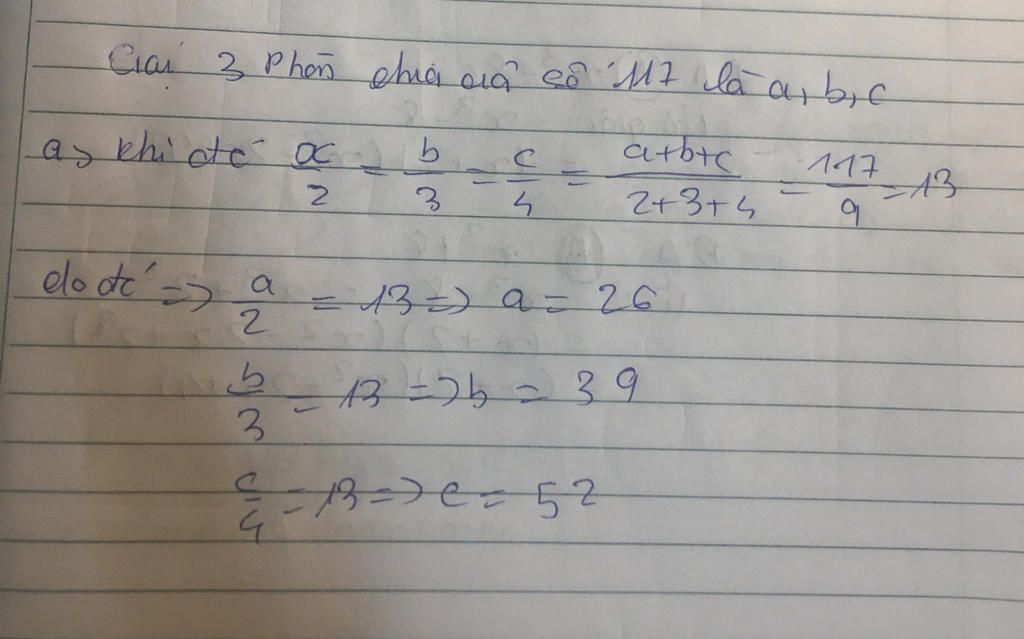 Gọi 3 phần chia của số 117 là a, b, c
a, khi đó x/2 = b/3 = c/4 = a+b+c/2+3+4 = 117/9 = 13
do đó => a/2 = 13 => a = 26
b/3 = 13 => b = 39
c/4 = 13 => c = 52